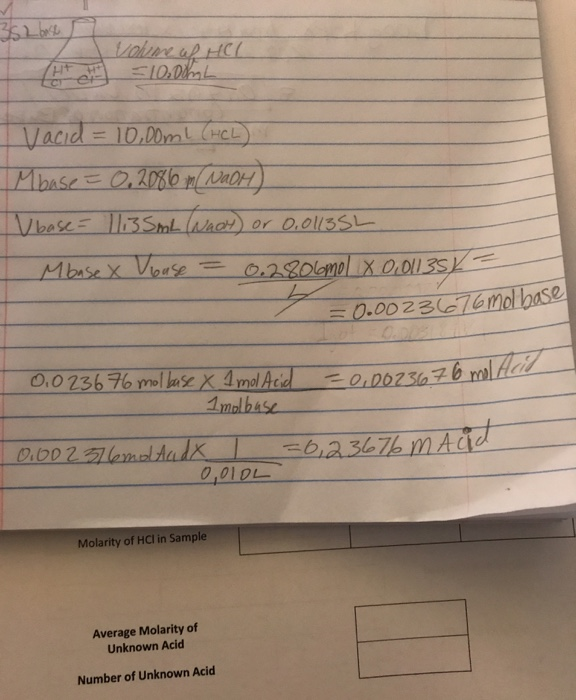 352 base
Volume of HCl
H+ H+
Cl- Cl-
= 10.00mL
Vacid = 10.00mL (HCL)
Mbase = 0.2086 m (NaOH)
Vbase = 11.35mL (NaOH) or 0.01135L
Mbase x Vbase = 0.2806mol x 0.01135L =
L
= 0.0023676 mol base
0.023676 mol base x 1mol Acid = 0.0023676 mol Acid
1mol base
0.002376mol Acid x 1 = 0.23676 M Acid
0.010L
Molarity of HCl in Sample
Average Molarity of
Unknown Acid
Number of Unknown Acid